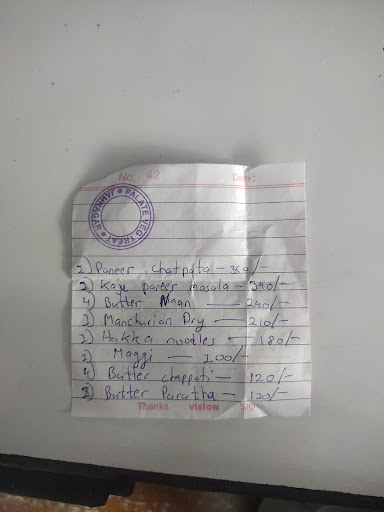 No. 42 Date:
PALATE VEG TREAT JAMNAGAR
1) Paneer chatpata - 350/-
2) Kaju paneer masala - 340/-
4) Butter Naan - 240/-
1) Manchurian Dry - 210/-
1) Hakka noodles - 180/-
1) Maggi - 100/-
4) Butter chappati - 120/-
3) Butter Paratha - 120/-
Thanks VISION Sign